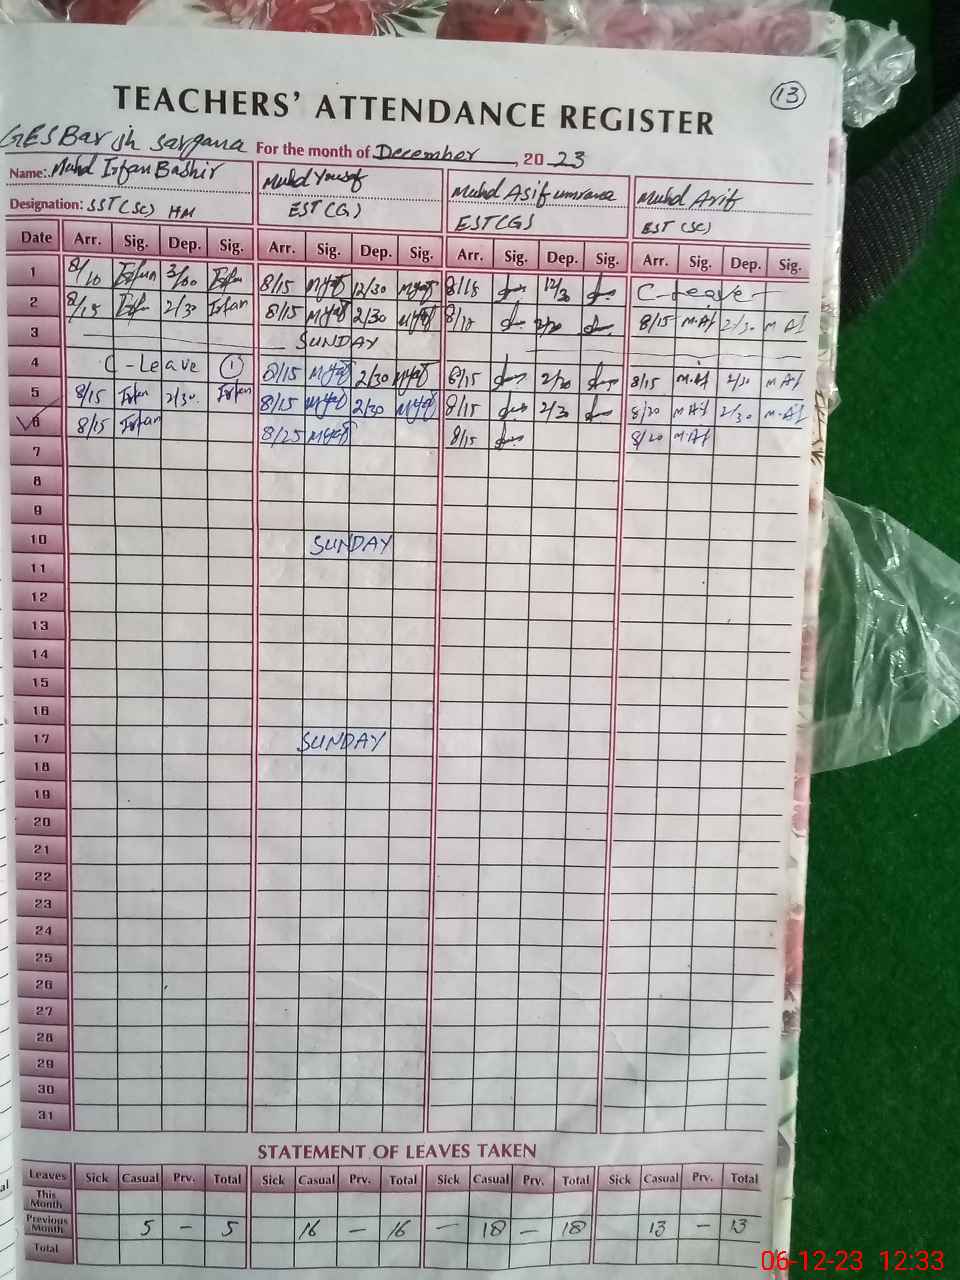 13
TEACHERS' ATTENDANCE REGISTER
GES Bar jh sargana For the month of December, 20 23
Name: Muhd Irfan Bashir Muhd Yousaf Muhd Asif umrana Muhd Arif
Designation: SST (SC) HM EST (G) EST (GS EST (SC)
Date Arr. Sig. Dep. Sig. Arr. Sig. Dep. Sig. Arr. Sig. Dep. Sig. Arr. Sig. Dep. Sig.
1 8/10 Irfan 3/00 Irfan 8/15 12/30 8/15 12/30 C-Leave
2 8/15 Irfan 2/30 Irfan 8/15 2/30 8/15 8/15 M.Af 2/30 M Af
3 SUNDAY
4 C-Leave 1 8/15 2/30 8/15 8/15 M.Af 2/30 M Af
5 8/15 Irfan 2/30 Irfan 8/15 2/30 8/15 2/30 8/20 M Af 2/30 M.Af
6 8/15 Irfan 8/25 8/15 8/20 M.Af
7
8
9
10 SUNDAY
11
12
13
14
15
16
17 SUNDAY
18
19
20
21
22
23
24
25
26
27
28
29
30
31
STATEMENT OF LEAVES TAKEN
Leaves Sick Casual Prv. Total Sick Casual Prv. Total Sick Casual Prv. Total Sick Casual Prv. Total
This Month
Previous Month 5 - 5 16 - 16 - 18 - 18 13 - 13
Total
06-12-23 12:33